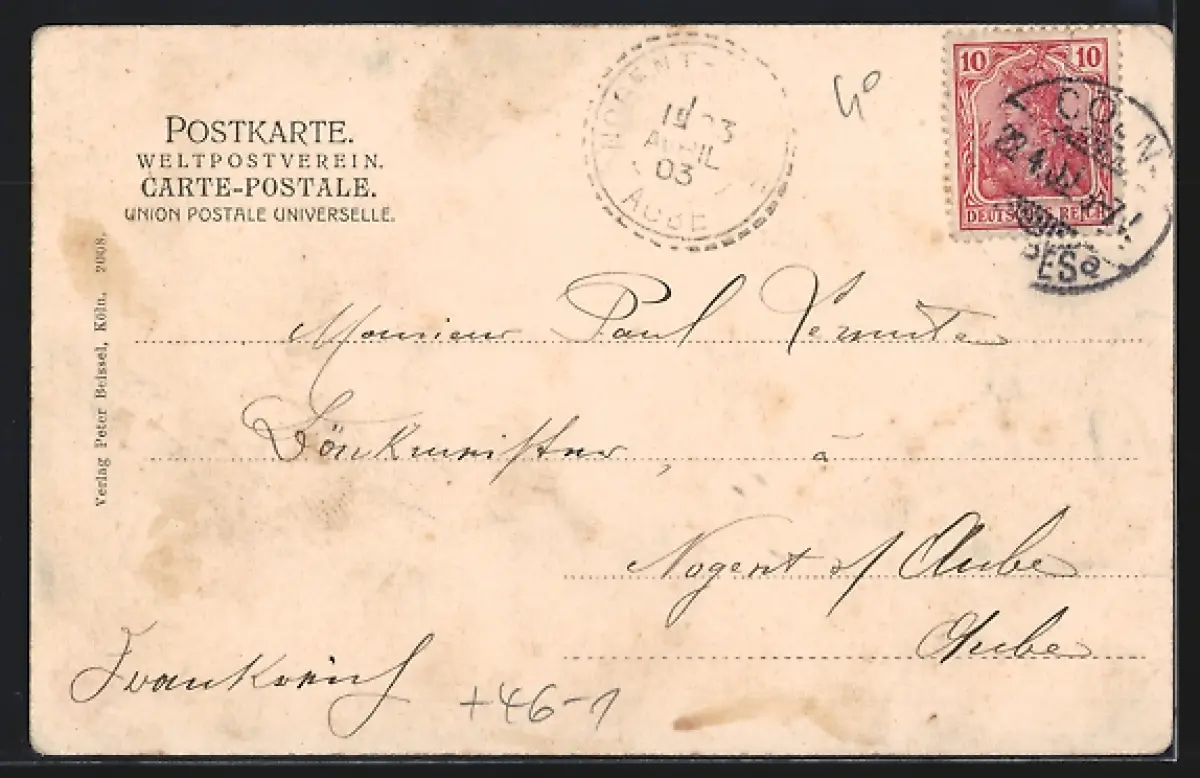 POSTKARTE.
WELTPOSTVEREIN.
CARTE-POSTALE.
UNION POSTALE UNIVERSELLE.
Verlag Peter Beissel, Köln. 2008.
NOGENT
23
AVRIL
03
AUBE
10 10
DEUTSCHES REICH
CÖLN
22.4.
Monsieur Paul
à
Nogent s/ Aube
Aube
Frankreich
+46-1